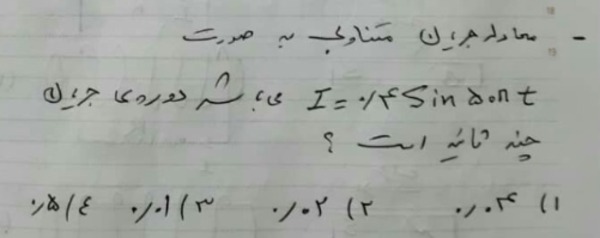 - معادله جریان متناوبی به صورت
I = ۰/۴ Sin ۵۰π t می باشد دوره‌ی جریان
چند ثانیه است ؟
۱) ۰/۰۴ ۲) ۰/۰۲ ۳) ۰/۰۱ ۴) ۰/۵